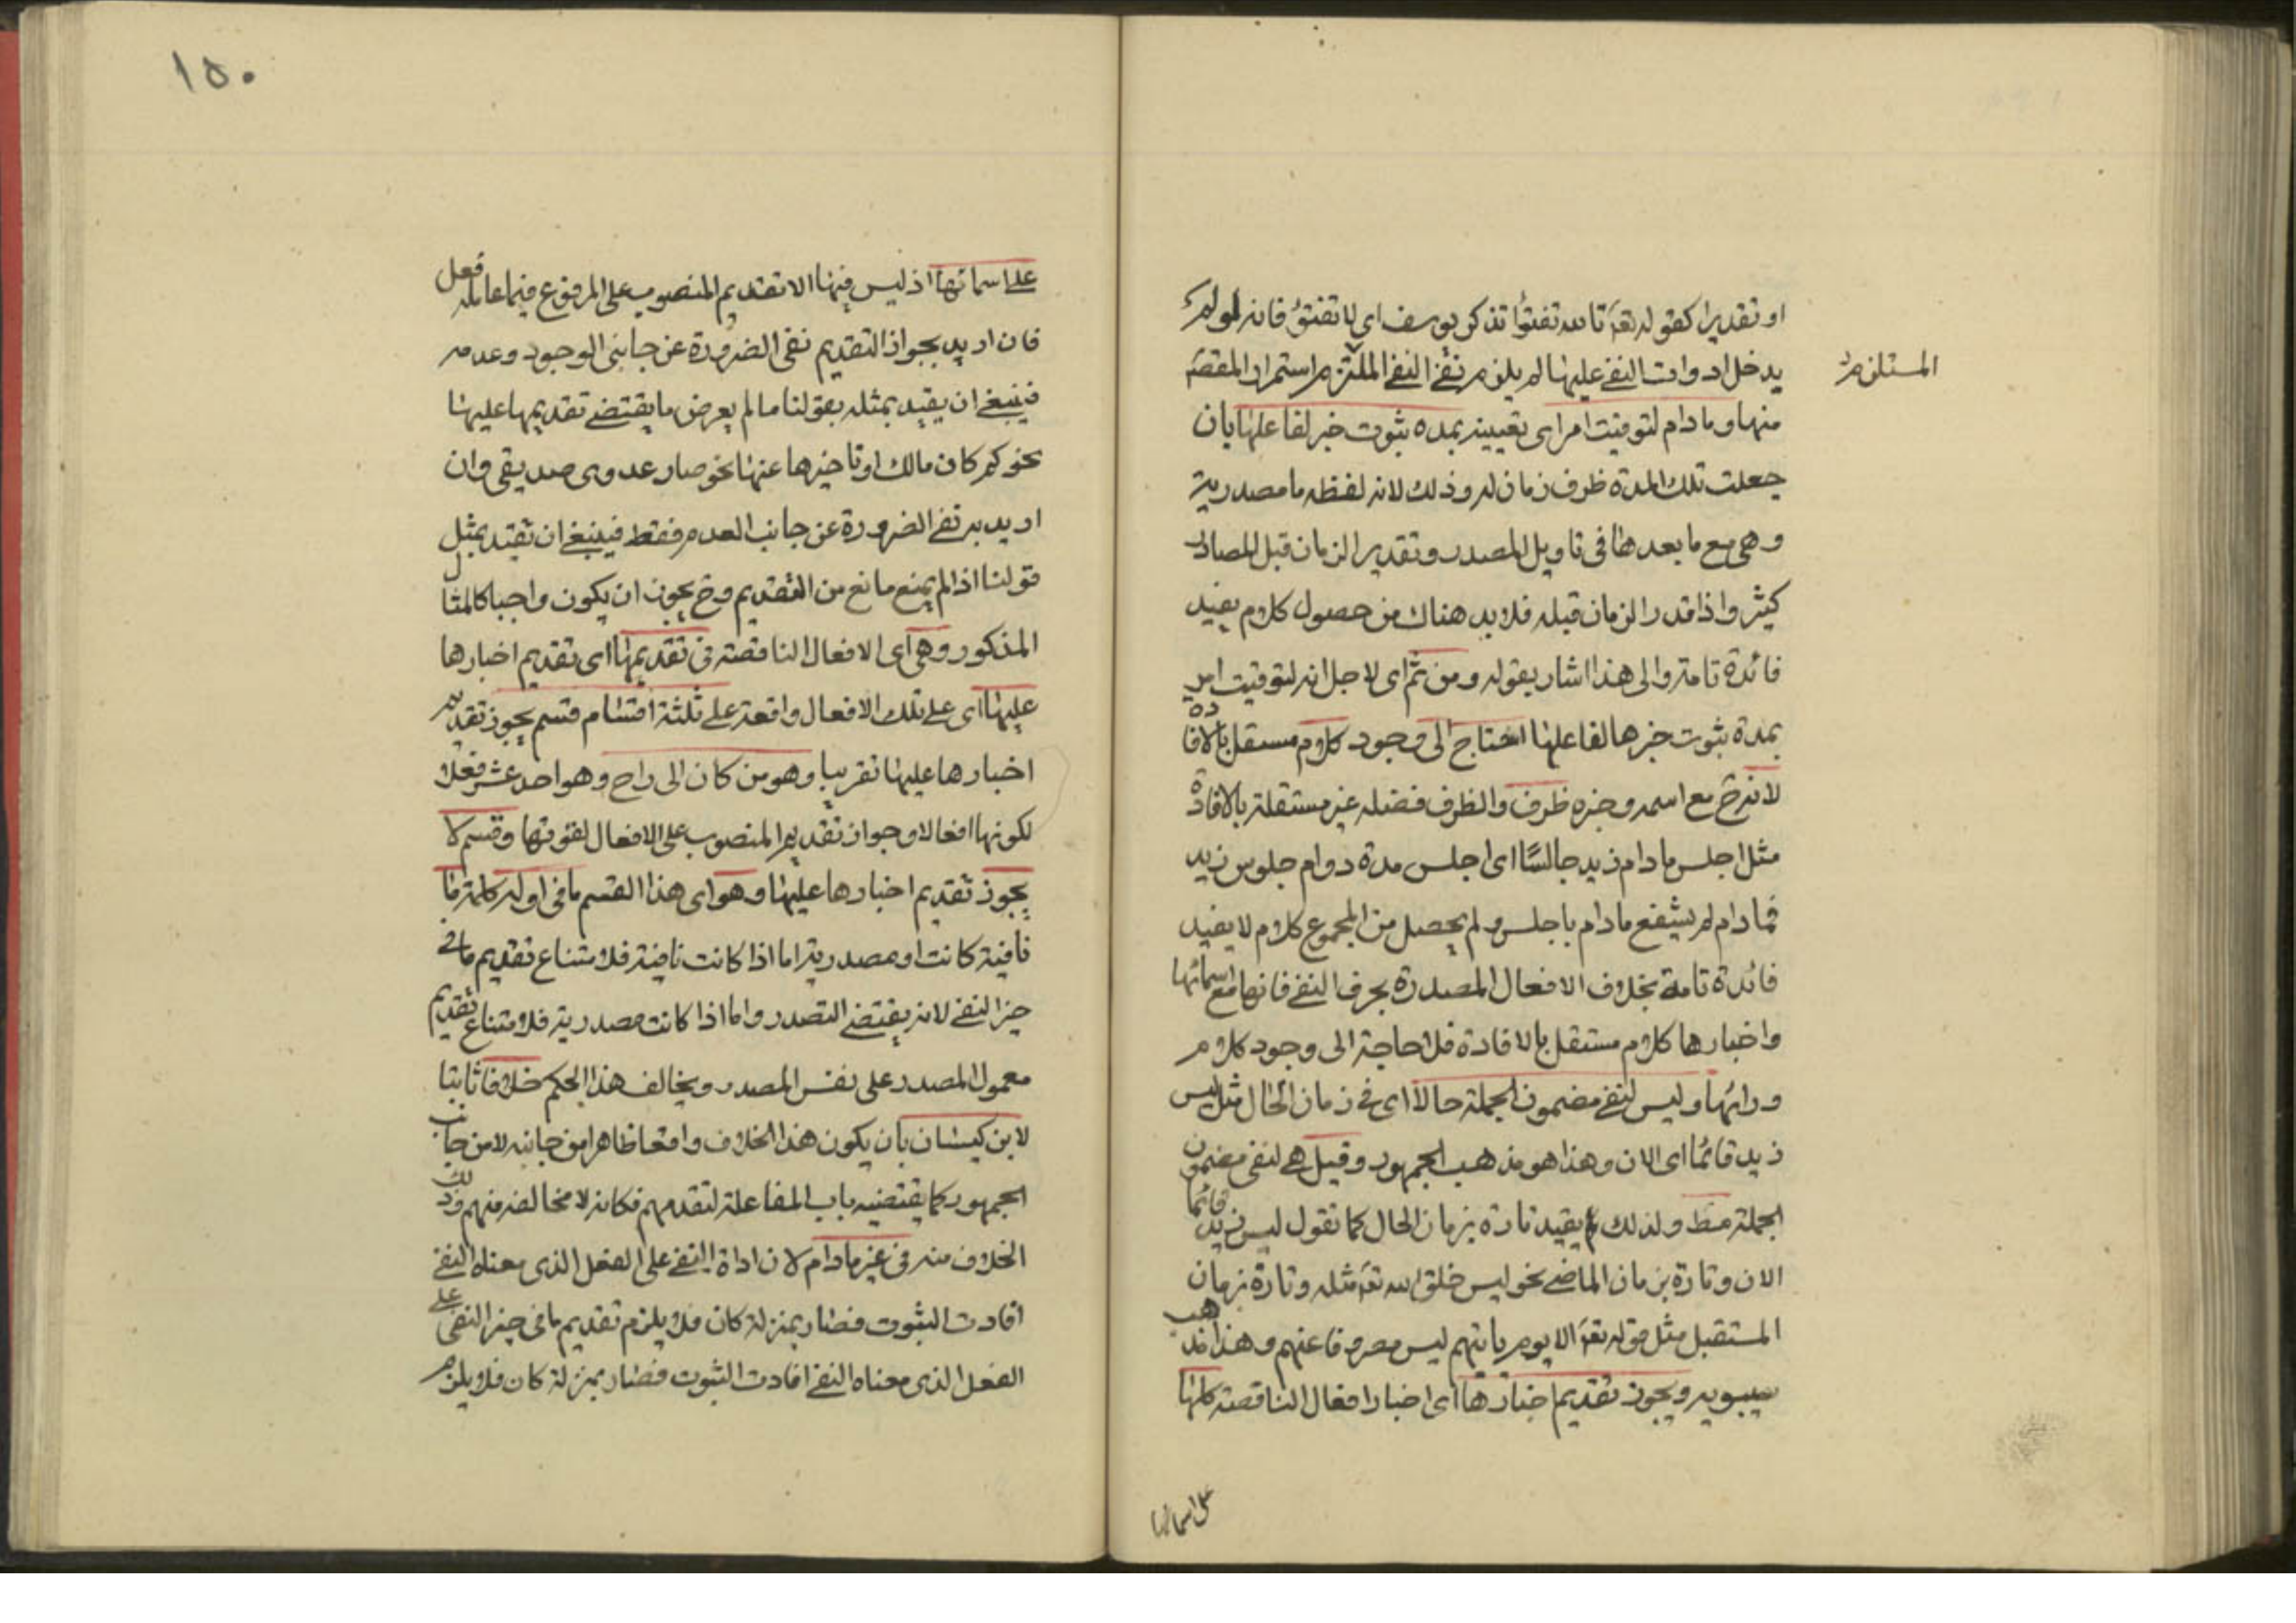 او تقديرا كقوله تعه تالله تفتؤا تذكر يوسف اى لا تفتؤ فانه لو لم
يدخل ادوات النفى عليها لم يلزم نفى النفى الملتزم استمرار المقصه
المستلزم
منها وما دام لتوقيت امر اى تعيينه بمدة ثبوت خبر لفاعلها بان
جعلت تلك المدة ظرف زمان له وذلك لانه لفظه ما مصدرية
وهى مع ما بعدها فى تاويل المصدر وتقدير الزمان قبل المصادر
كثير واذا قدر الزمان قبله فلا بد هناك من حصول كلام يفيد
فائدة تامة والى هذا اشار بقوله ومن ثم اى لاجل انه لتوقيت امر
بمدة ثبوت خبرها لفاعلها احتاج الى وجود كلام مستقل بالافادة
لانه ح مع اسمه وخبره ظرف والظرف فضله غير مستقلة بالافادة
مثل اجلس ما دام زيد جالسًا اى اجلس مدة دوام جلوس زيد
فما دام لم يشفع ما دام باجلس ولم يحصل من المجموع كلام لا يفيد
فائدة تامة بخلاف الافعال المصدرة بحرف النفى فانها مع اسمائها
واخبارها كلام مستقل بالافادة فلا حاجة الى وجود كلام
ورائها وليس لنفى مضمون الجملة حالا اى فى زمان الحال مثل ليس
زيد قائما اى الان وهذا هو مذهب الجمهور وقيل هى لنفى مضمون
الجملة مط ولذلك يقيد تارة بزمان الحال كما تقول ليس زيد قائما
الان وتارة بزمان الماضى نحو ليس خلق الله تعه مثله وتارة بزمان
المستقبل مثل قوله تعه الا يوم ياتيهم ليس مصروفا عنهم وهذا مذهب
سيبويه ويجوز تقديم اخبارها اى اخبار افعال الناقصة كلها
على اسمائها
١٥٠
على اسمائها اذ ليس فيها الا تقديم المنصوب على المرفوع فيما عامله فعل
فان اريد بجواز التقديم نفى الضرورة عن جانبى الوجود وعدمه
فينبغى ان يقيد بمثله بقولنا ما لم يعرض ما يقتضى تقديمها عليها
نحو كم كان مالك او تاخيرها عنها نحو صار عدوى صديقى وان
اريد به نفى الضرورة عن جانب العدم فقط فينبغى ان تقيد بمثل
قولنا اذا لم يمنع مانع من التقديم وح يجوز ان يكون واجبا كالمثال
المذكور وهى اى الافعال الناقصة فى تقديمها اى تقديم اخبارها
عليها اى على تلك الافعال واقعة على ثلثة اقسام قسم يجوز تقديم
اخبارها عليها تقريبا وهو من كان الى راح وهو احد عشر فعلا
لكونها افعالا وجواز تقديم المنصوب على الافعال لقوتها وقسم لا
يجوز تقديم اخبارها عليها وهو اى هذا القسم ما فى اوله كلمة ما
نافية كانت او مصدرية اما اذا كانت نافية فلامتناع تقديم ما فى
حيز النفى لانه يقتضى التصدر واما اذا كانت مصدرية فلامتناع تقديم
معمول المصدر على نفس المصدر ويخالف هذا الحكم خلافا ثابتا
لابن كيسان بان يكون هذا الخلاف واقعا ظاهرا من جانبه لا من جانب
الجمهور كما يقتضيه باب المفاعلة لتقدمهم فكانه لا مخالفه منهم وذلك
الخلاف منه فى غير ما دام لان اداة النفى على الفعل الذى معناه النفى
افادت الثبوت فصار بمنزلة كان فلا يلزم تقديم ما فى حيز النفى على
الفعل الذى معناه النفى افادت الثبوت فصار بمنزلة كان فلا يلزم